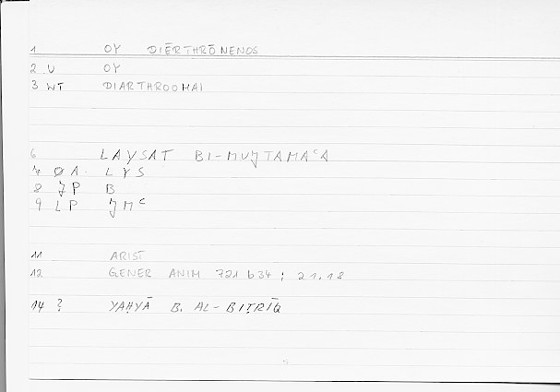 1 OY DIĒRTHRŌMENOS
2 U OY
3 WT DIARTHROOMAI
6 LAYSAT BI-MUJTAMAʿA
7 Ø A. LYS
8 JP B
9 LP JMʿ
11 ARIST
12 GENER ANIM 721 b34 ; 21.18
14 ? YAḤYĀ B. AL-BIṬRĪQ